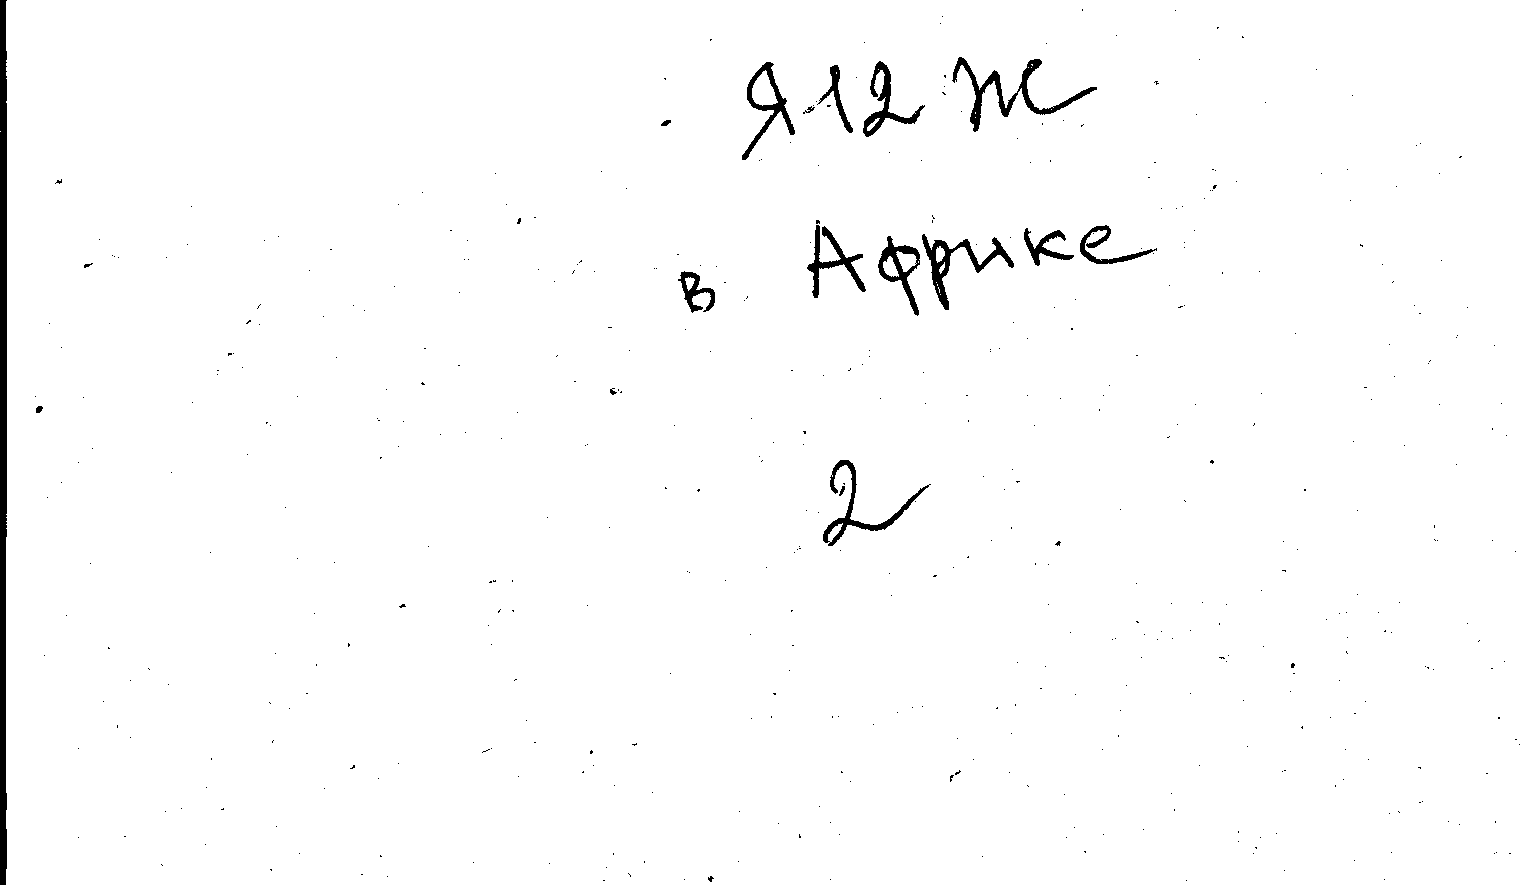 Я 12 Ж
в Африке
2